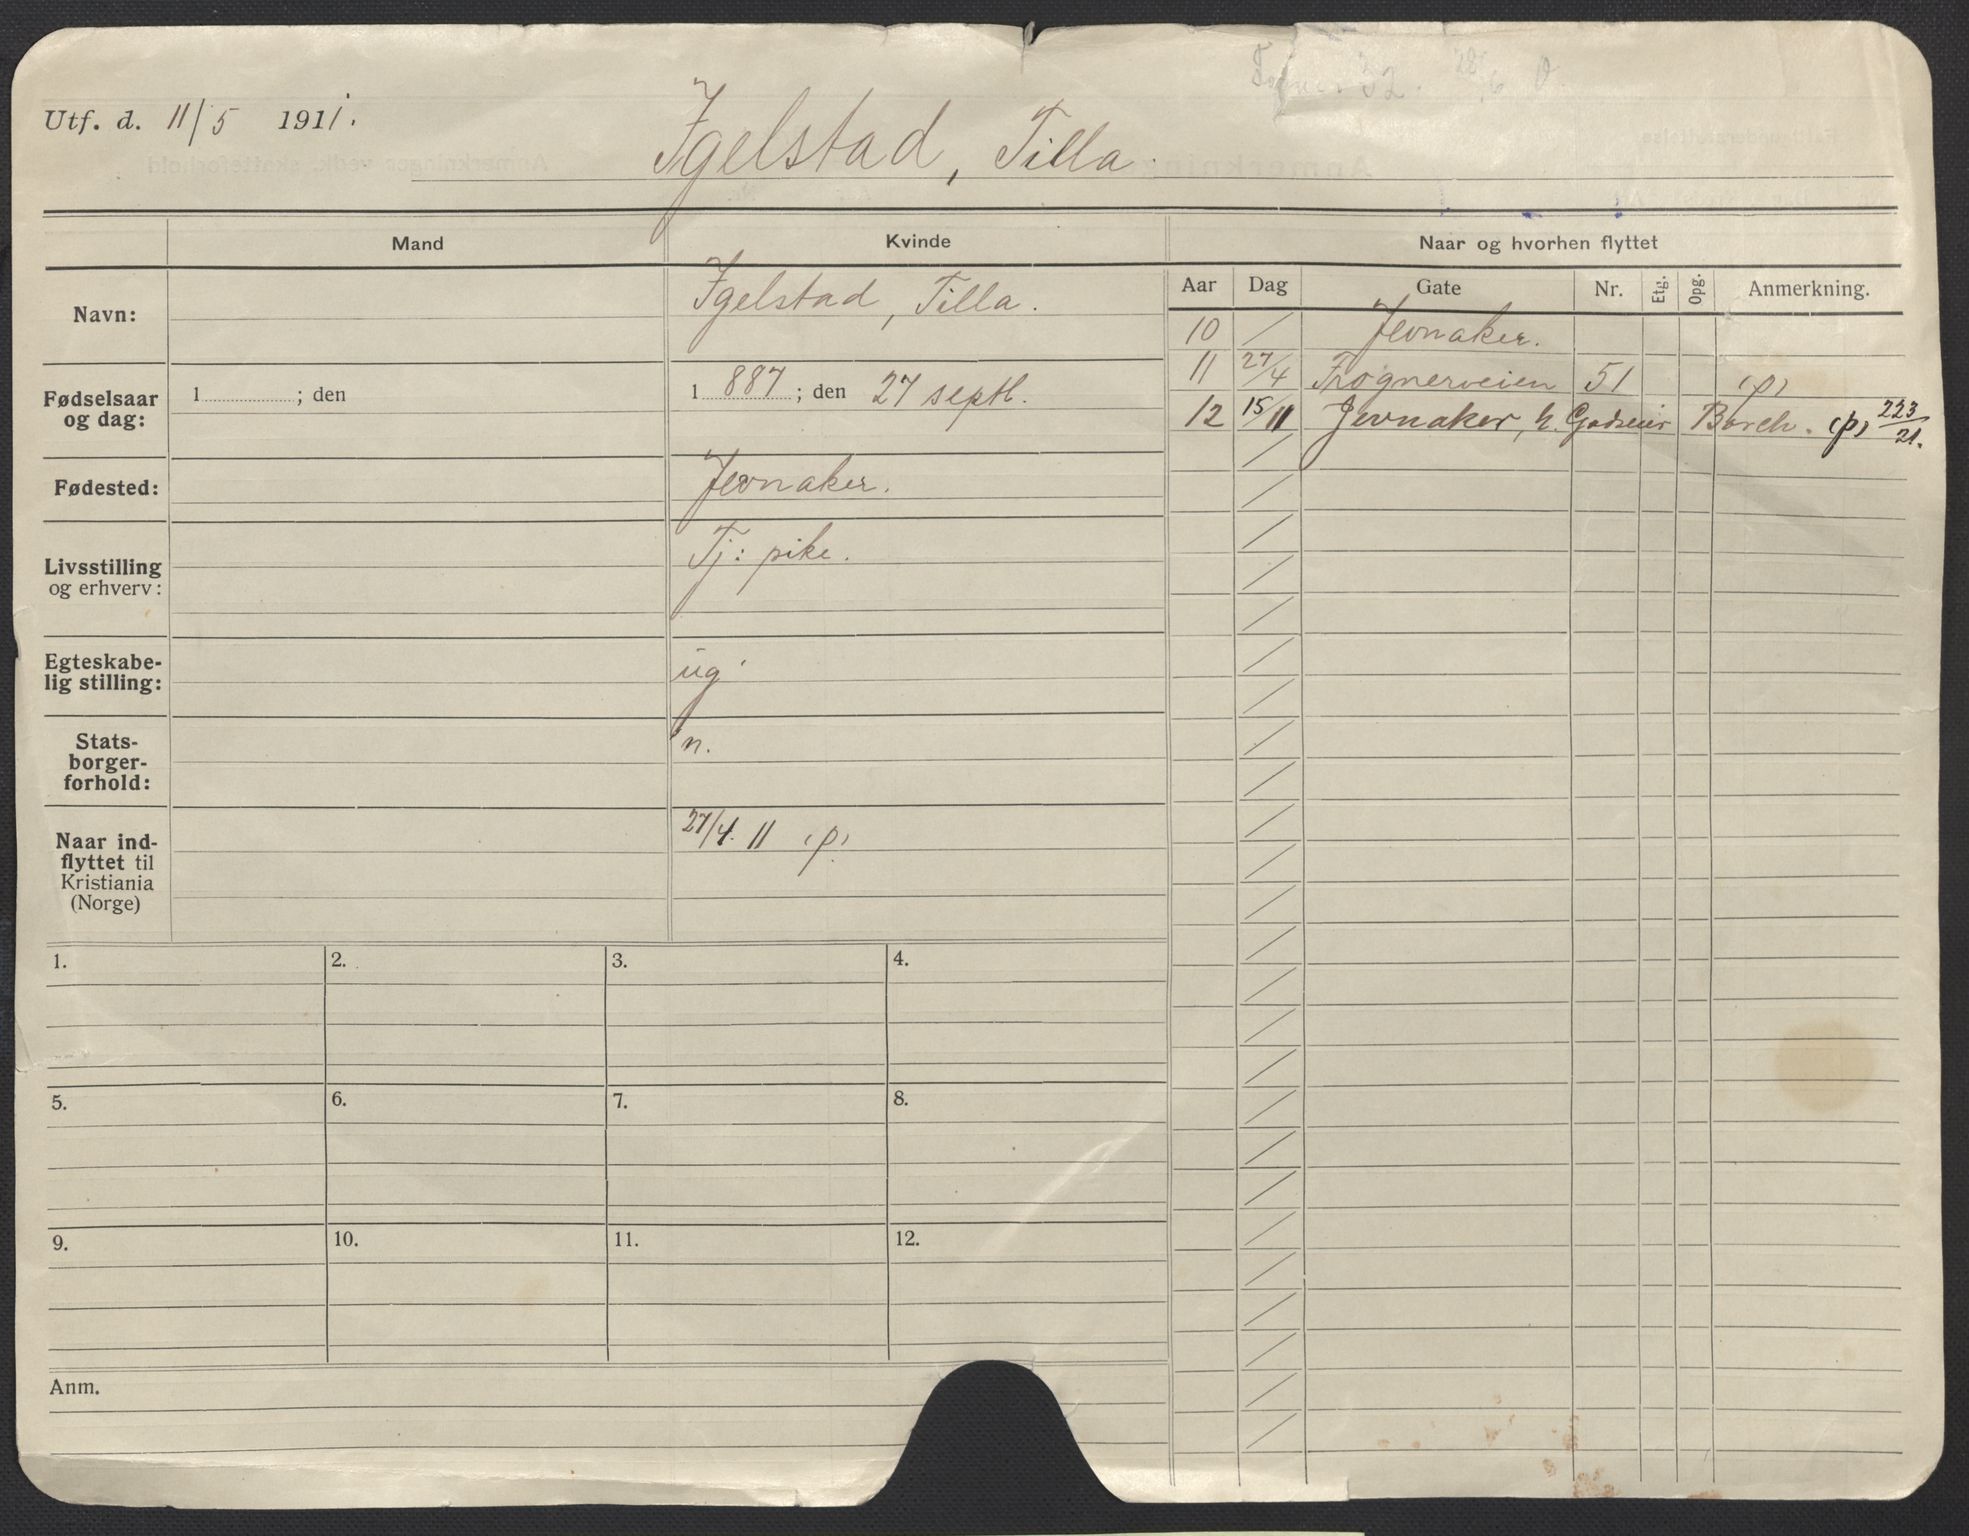 Utf. d. 11/5 1911.
Igelstad, Tilla.
Mand
Kvinde
Naar og hvorhen flyttet
Aar Dag Gate Nr. Etg. Opg. Anmerkning.
Navn:
Igelstad, Tilla.
10 / Jevnaker.
11 27/4 Frognerveien 51 (p)
12 15/11 Jevnaker, h. Godseier Borch. (p) 223/21.
Fødselsaar og dag:
1 ; den
1 887 ; den 27 septb.
Fødested:
Jevnaker.
Livsstilling og erhverv:
Tj: pike.
Egteskabe-
lig stilling:
ug
Stats-
borger-
forhold:
n.
Naar ind-
flyttet til
Kristiania
(Norge)
27/4. 11 (p)
1. 2. 3. 4.
5. 6. 7. 8.
9. 10. 11. 12.
Anm.